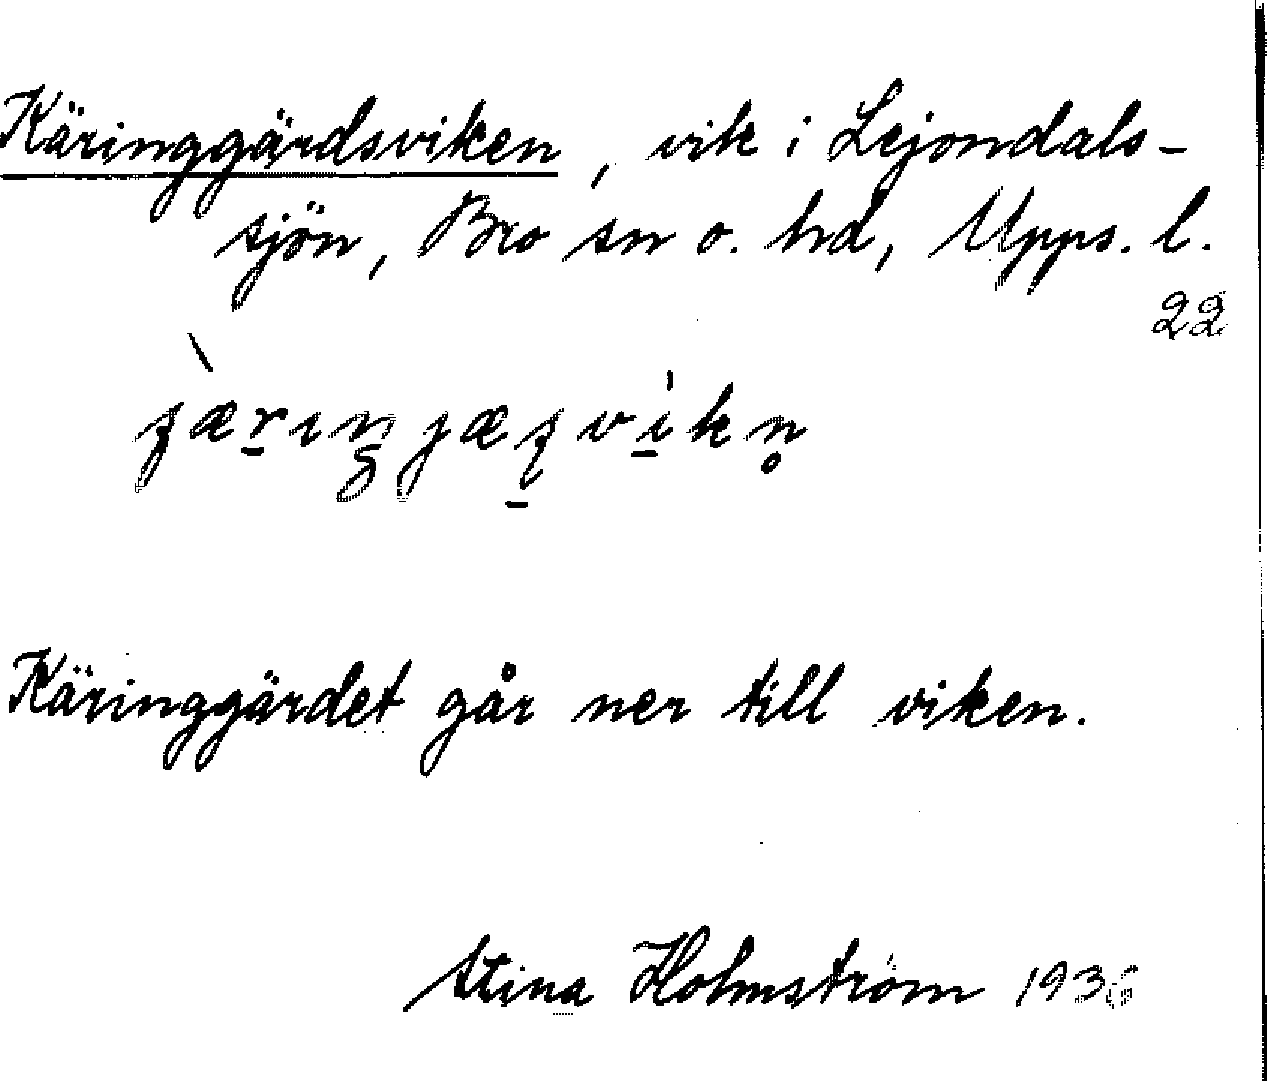 Käringgärdsviken, vik i Lejondals-
sjön, Bro sn o. hd, Upps. l.
22
Käringgärdet går ner till viken.
Stina Holmström